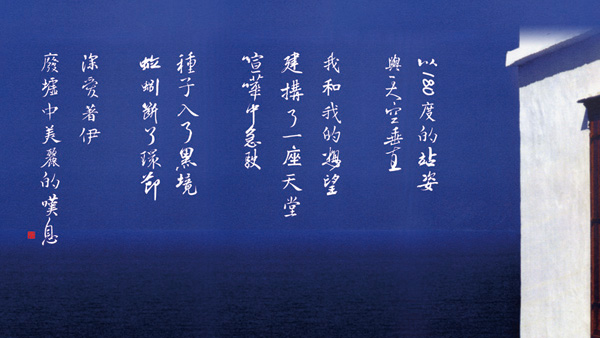 以180度的站姿
與天空垂直
我和我的想望
建搆了一座天堂
喧嘩中急駛
種子入了黑境
蚯蚓斷了環節
深愛著伊
廢墟中美麗的嘆息